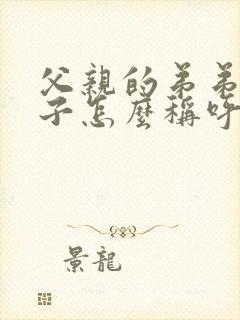 父親的弟弟
子怎麼稱呼
景龍